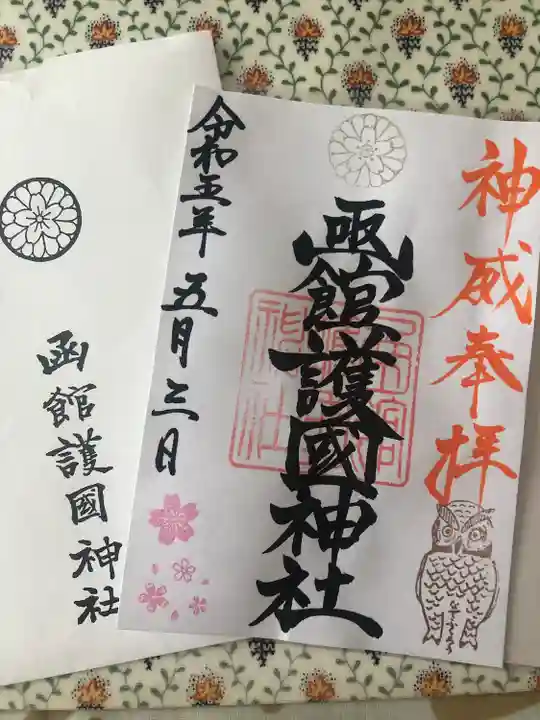 神威奉拝
函館護國神社
令和五年五月三日
函館護國神社